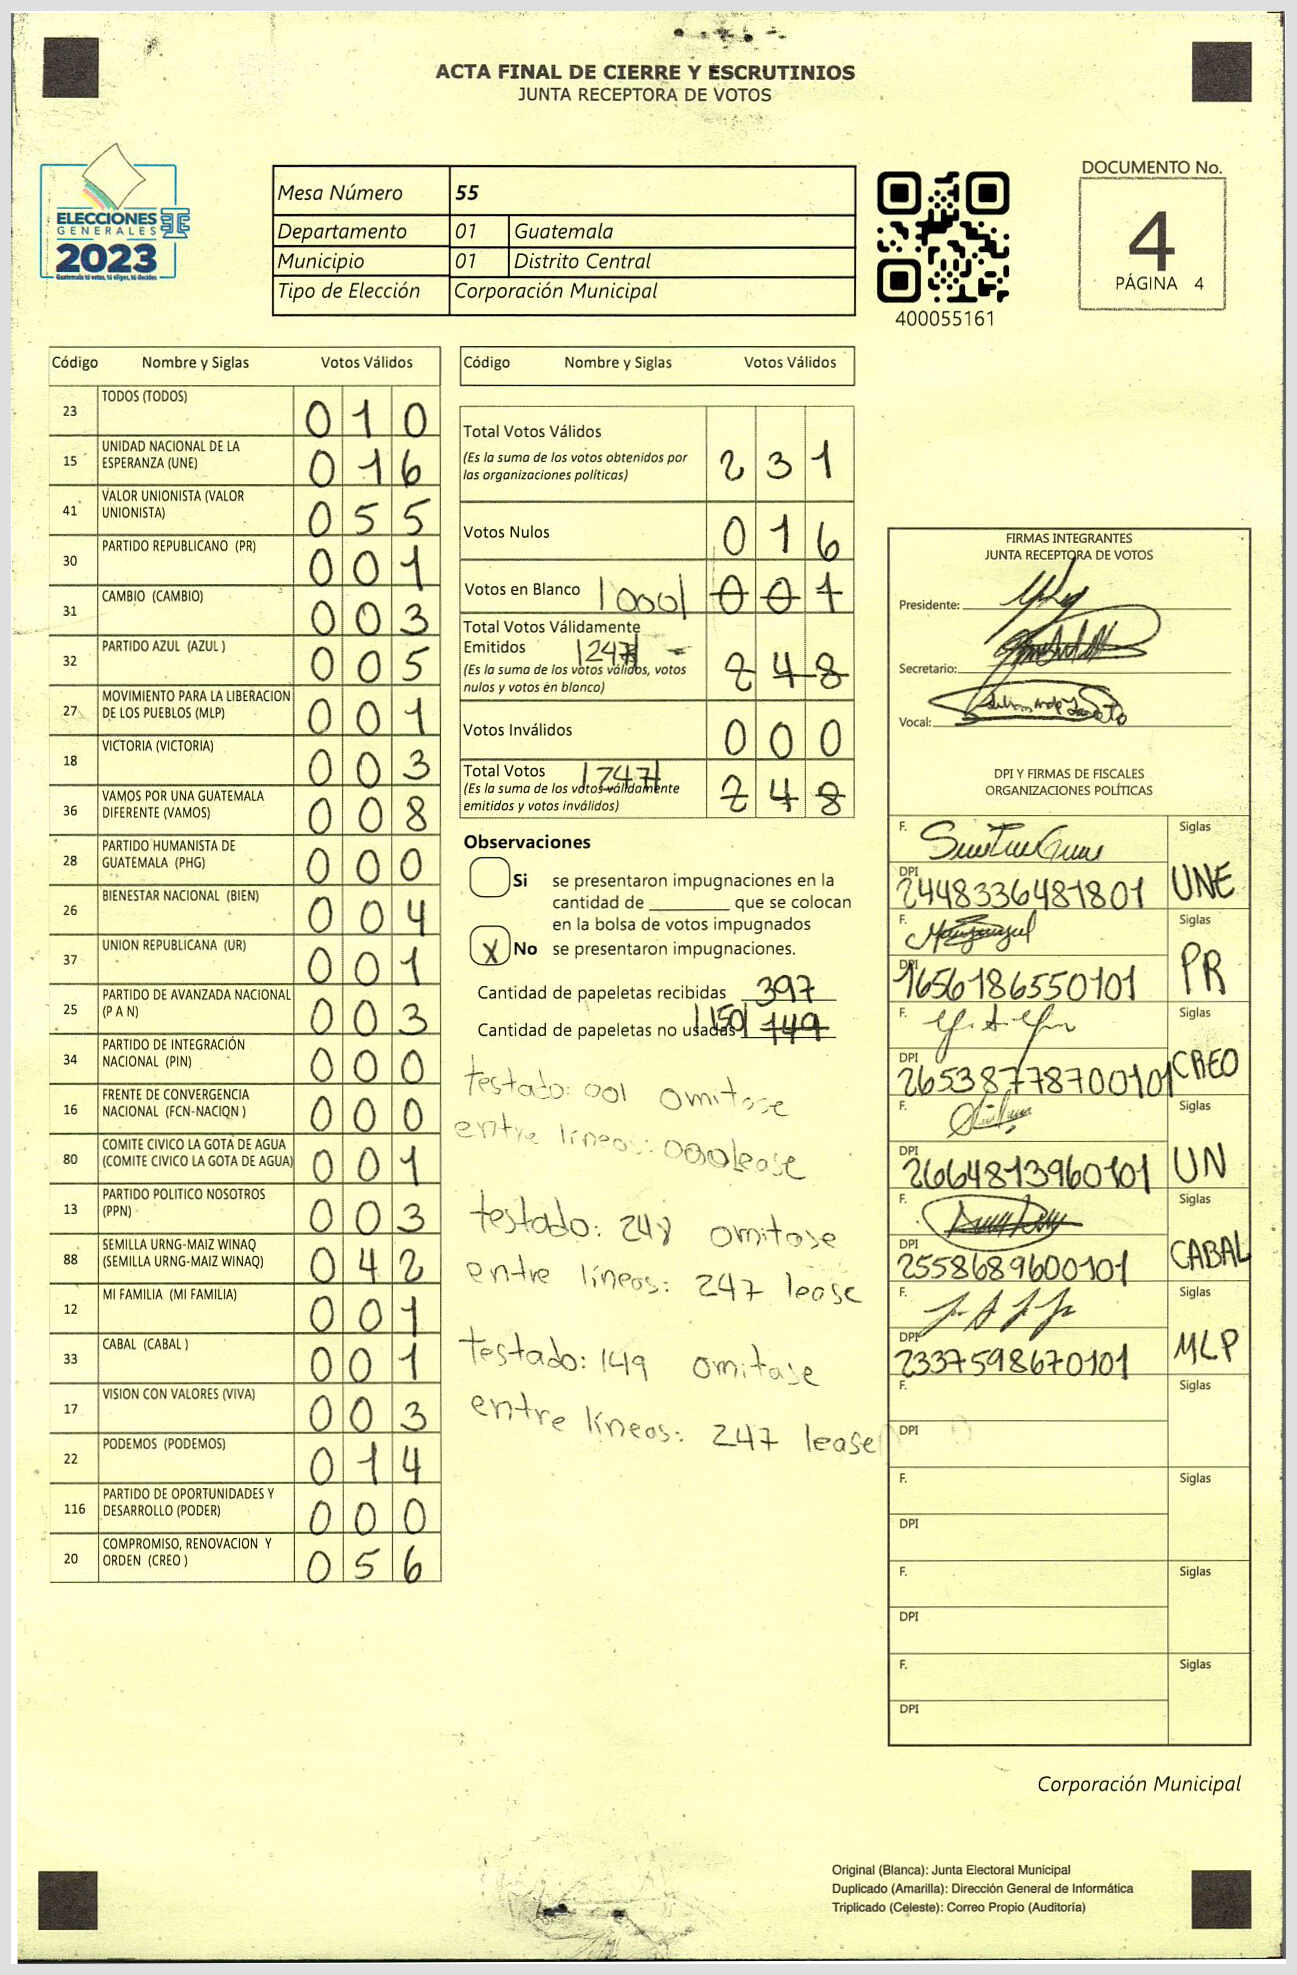 ACTA FINAL DE CIERRE Y ESCRUTINIOS
JUNTA RECEPTORA DE VOTOS
ELECCIONES
GENERALES
2023
Guatemala tú votas, tú eliges, tú decides
Mesa Número 55
Departamento 01 Guatemala
Municipio 01 Distrito Central
Tipo de Elección Corporación Municipal
400055161
DOCUMENTO No.
4
PÁGINA 4
Código Nombre y Siglas Votos Válidos
23 TODOS (TODOS) 0 1 0
15 UNIDAD NACIONAL DE LA
ESPERANZA (UNE) 0 1 6
41 VALOR UNIONISTA (VALOR
UNIONISTA) 0 5 5
30 PARTIDO REPUBLICANO (PR) 0 0 1
31 CAMBIO (CAMBIO) 0 0 3
32 PARTIDO AZUL (AZUL ) 0 0 5
27 MOVIMIENTO PARA LA LIBERACION
DE LOS PUEBLOS (MLP) 0 0 1
18 VICTORIA (VICTORIA) 0 0 3
36 VAMOS POR UNA GUATEMALA
DIFERENTE (VAMOS) 0 0 8
28 PARTIDO HUMANISTA DE
GUATEMALA (PHG) 0 0 0
26 BIENESTAR NACIONAL (BIEN) 0 0 4
37 UNION REPUBLICANA (UR) 0 0 1
25 PARTIDO DE AVANZADA NACIONAL
(P A N) 0 0 3
34 PARTIDO DE INTEGRACIÓN
NACIONAL (PIN) 0 0 0
16 FRENTE DE CONVERGENCIA
NACIONAL (FCN-NACION ) 0 0 0
80 COMITE CIVICO LA GOTA DE AGUA
(COMITE CIVICO LA GOTA DE AGUA) 0 0 1
13 PARTIDO POLITICO NOSOTROS
(PPN) 0 0 3
88 SEMILLA URNG-MAIZ WINAQ
(SEMILLA URNG-MAIZ WINAQ) 0 4 2
12 MI FAMILIA (MI FAMILIA) 0 0 1
33 CABAL (CABAL ) 0 0 1
17 VISION CON VALORES (VIVA) 0 0 3
22 PODEMOS (PODEMOS) 0 1 4
116 PARTIDO DE OPORTUNIDADES Y
DESARROLLO (PODER) 0 0 0
20 COMPROMISO, RENOVACION Y
ORDEN (CREO ) 0 5 6
Código Nombre y Siglas Votos Válidos
Total Votos Válidos
(Es la suma de los votos obtenidos por
las organizaciones políticas) 2 3 1
Votos Nulos 0 1 6
Votos en Blanco |000| 0 0 1
Total Votos Válidamente
Emitidos |247|
(Es la suma de los votos válidos, votos
nulos y votos en blanco) 2 4 8
Votos Inválidos 0 0 0
Total Votos |247|
(Es la suma de los votos válidamente
emitidos y votos inválidos) 2 4 8
Observaciones
Si se presentaron impugnaciones en la
cantidad de ________ que se colocan
en la bolsa de votos impugnados
X No se presentaron impugnaciones.
Cantidad de papeletas recibidas 397
Cantidad de papeletas no usadas |150| 149
testado: 001 omitase
entre líneas: 000 lease
testado: 248 omitase
entre líneas: 247 lease
testado: 149 omitase
entre líneas: 247 lease
FIRMAS INTEGRANTES
JUNTA RECEPTORA DE VOTOS
Presidente:
Secretario:
Vocal:
DPI Y FIRMAS DE FISCALES
ORGANIZACIONES POLÍTICAS
F. Siglas
DPI 2448336481801 UNE
F. Siglas
DPI 1656186550101 PR
F. Siglas
DPI 2653877870010​1 CREO
F. Siglas
DPI 2664813960101 UN
F. Siglas
DPI 2558689600101 CABAL
F. Siglas
DPI 2337598670101 MLP
F. Siglas
DPI
F. Siglas
DPI
F. Siglas
DPI
F. Siglas
DPI
Corporación Municipal
Original (Blanca): Junta Electoral Municipal
Duplicado (Amarilla): Dirección General de Informática
Triplicado (Celeste): Correo Propio (Auditoría)